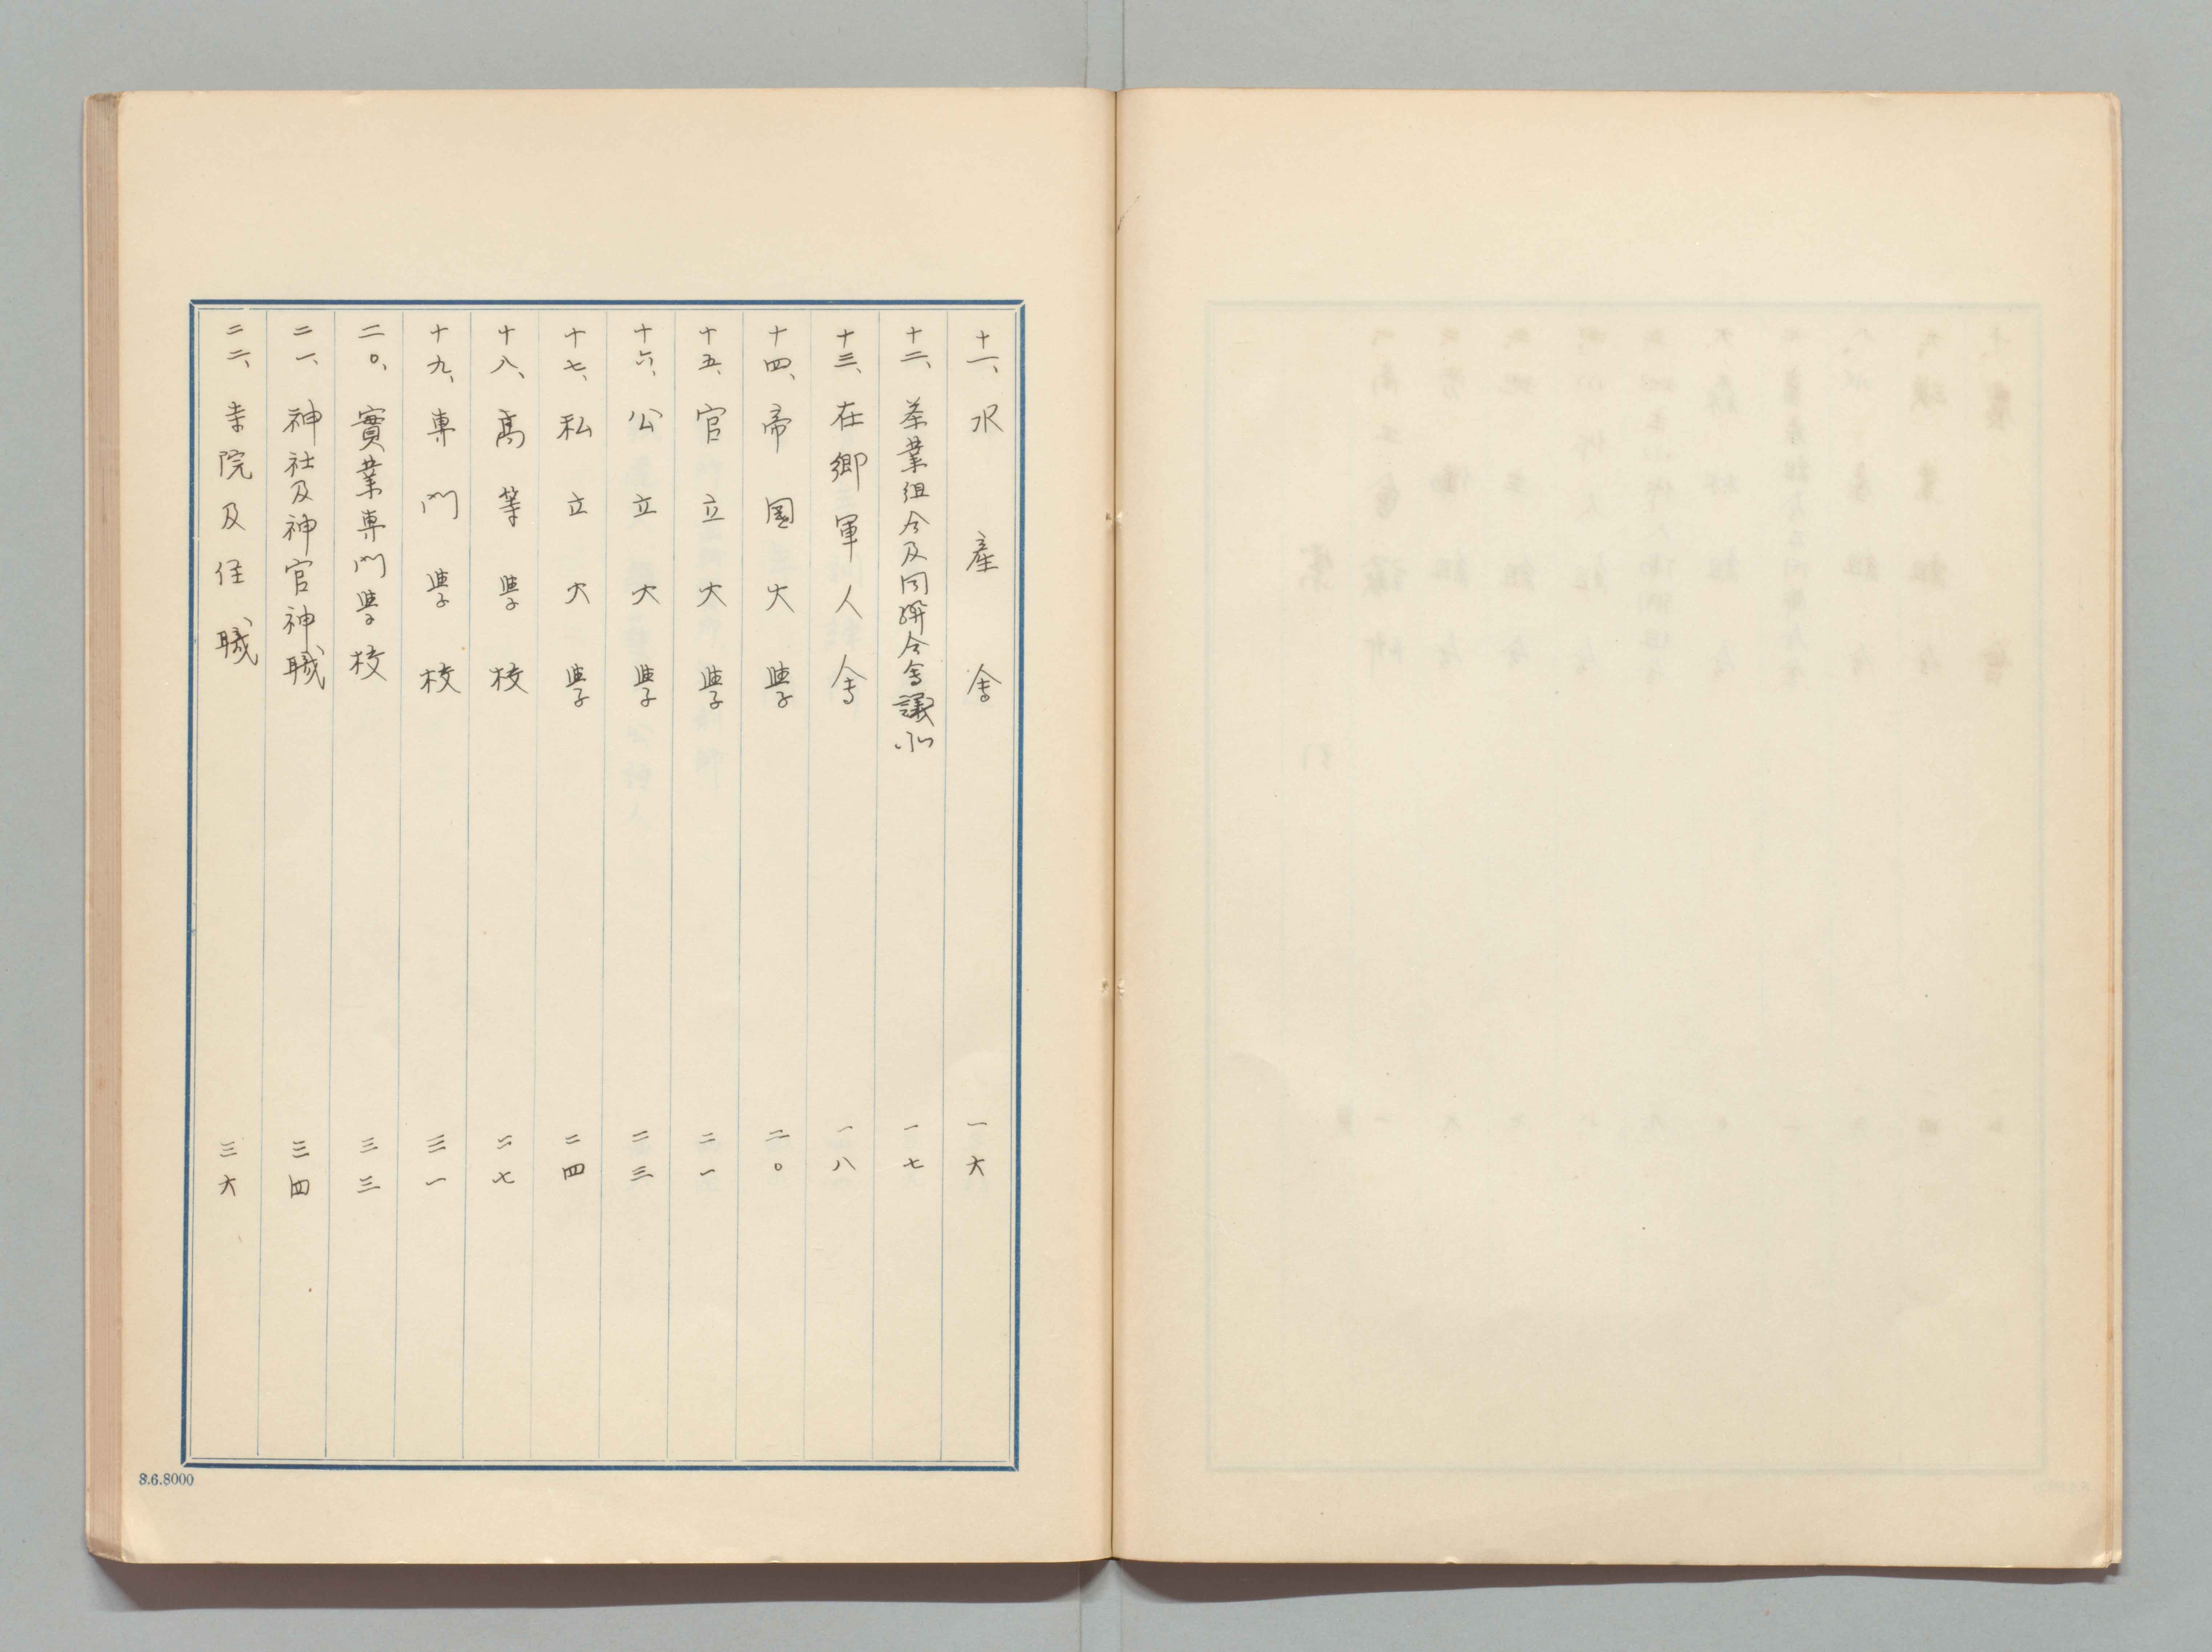 十一、水産会 一六
十二、茶業組合及同聯合会議所 一七
十三、在郷軍人会 一八
十四、帝国大学 二〇
十五、官立大学 二一
十六、公立大学 二三
十七、私立大学 二四
十八、高等学校 二七
十九、専門学校 三一
二〇、實業専門学校 三三
二一、神社及神官神職 三四
二二、寺院及住職 三六
8.6.8000